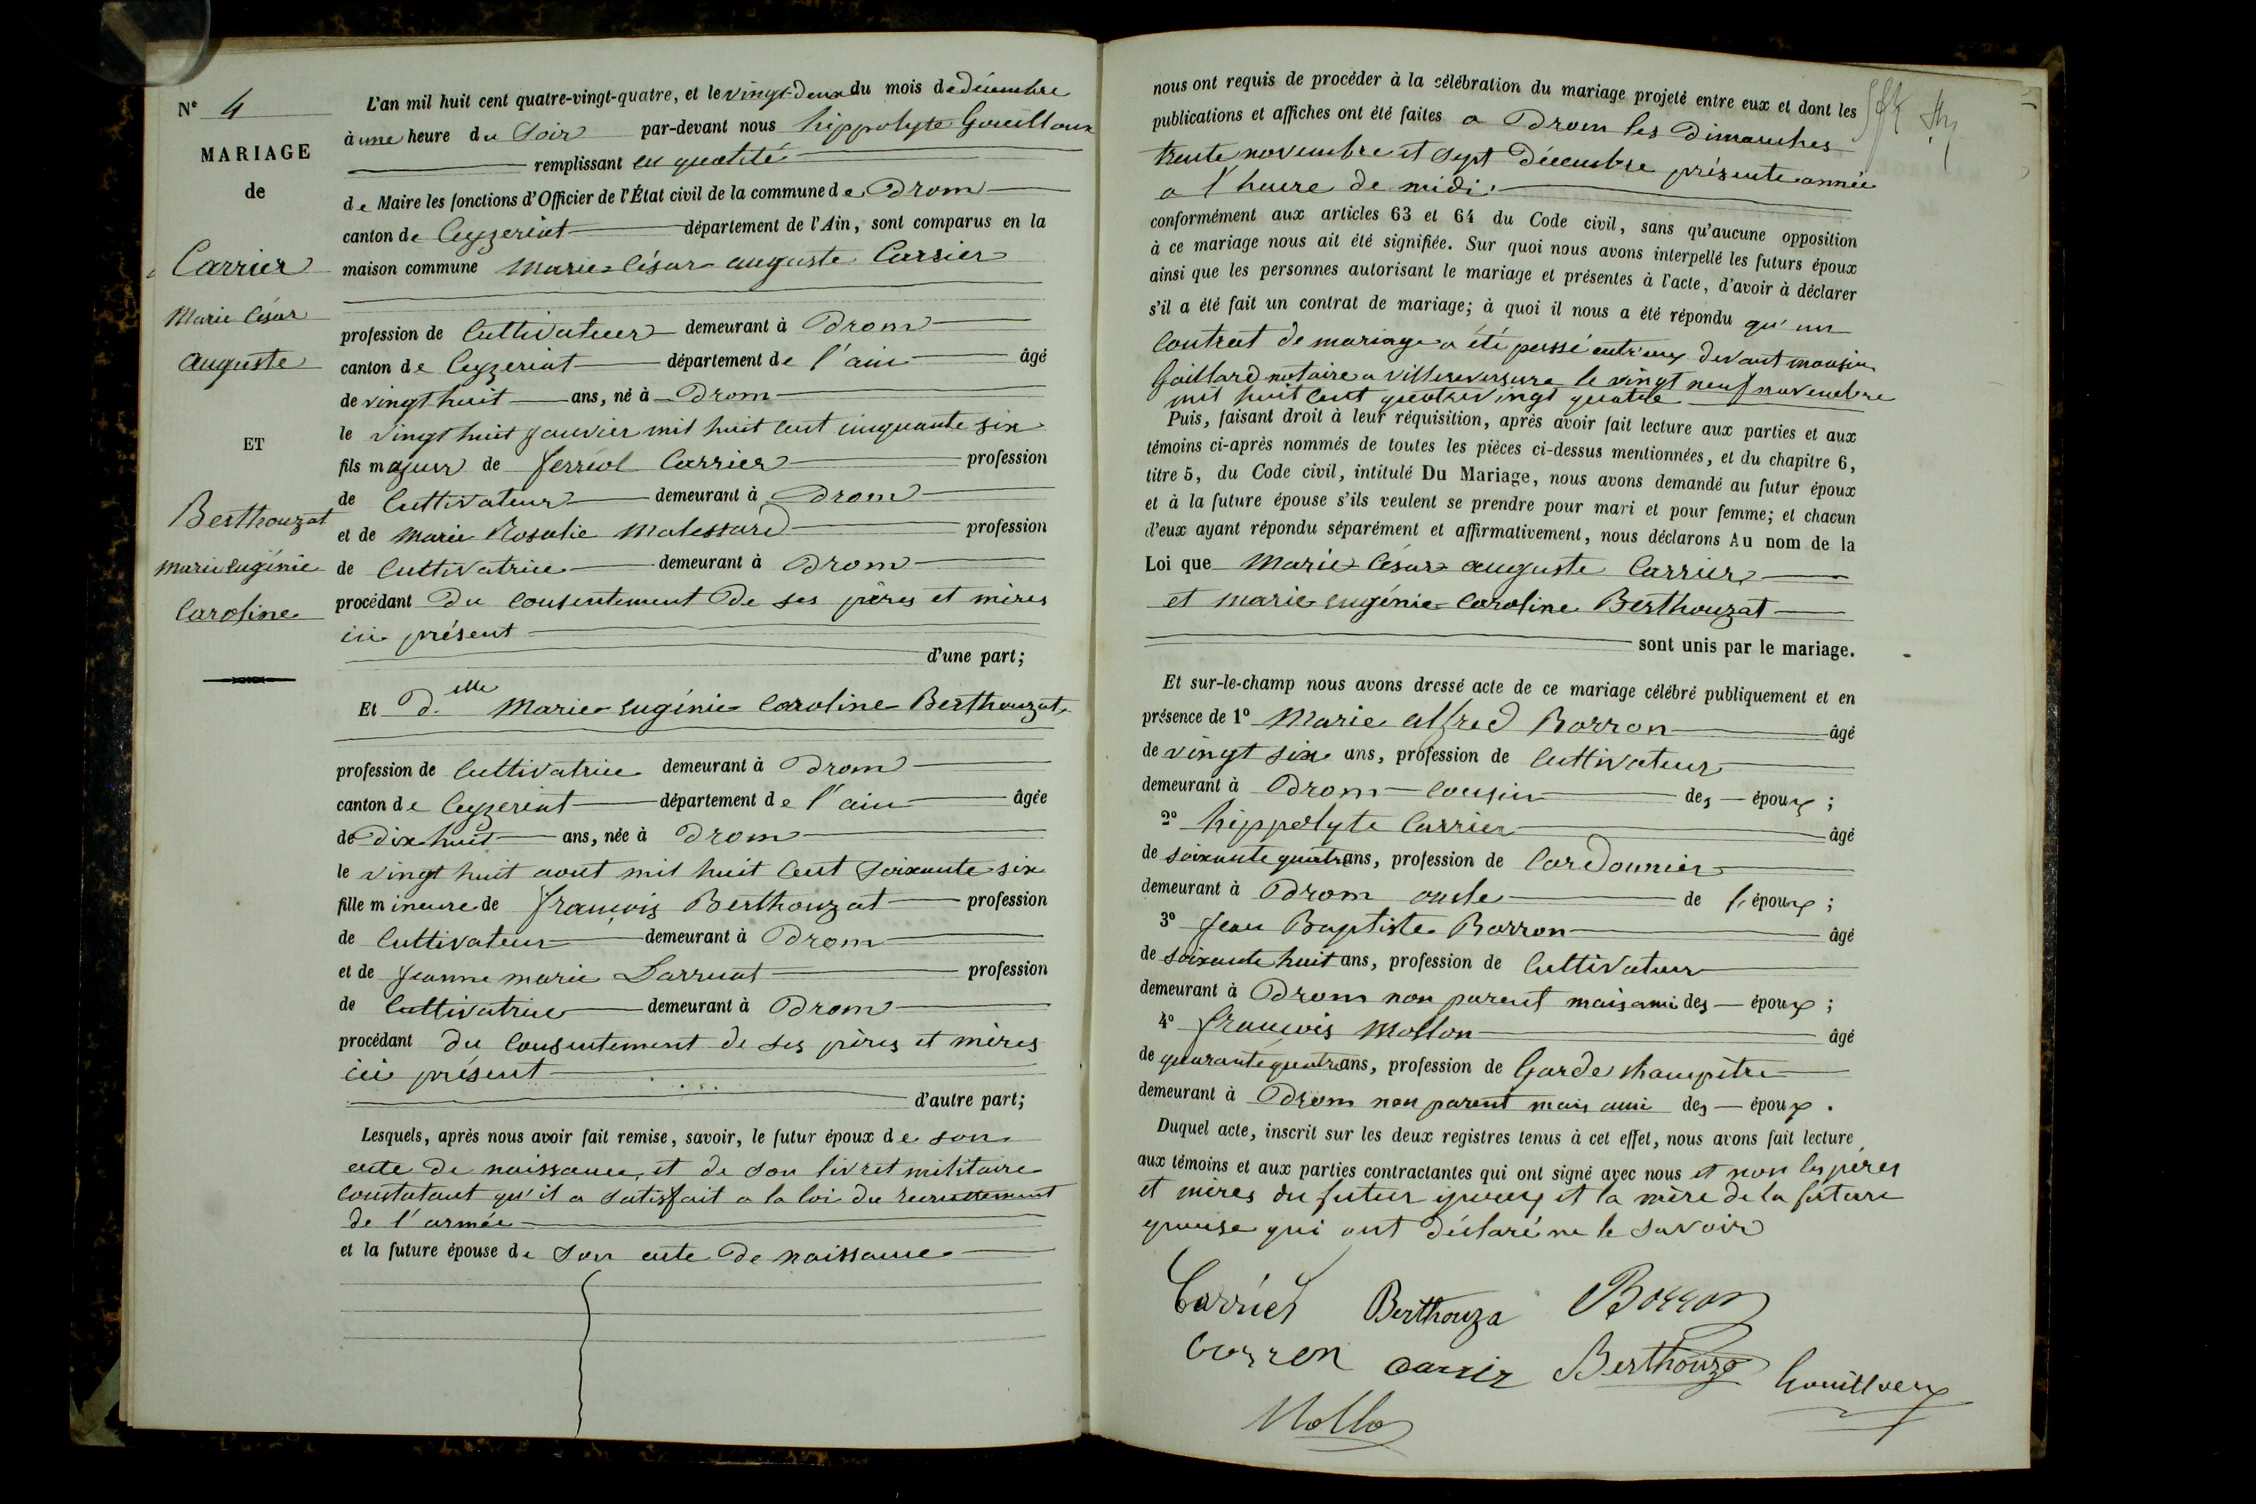 N° 4
MARIAGE
de
Carrier
Marie César
auguste
ET
Berthouzat
marie eugénie
Caroline
L'an mil huit cent quatre-vingt-quatre, et le vingt-deux du mois de décembre
à une heure du Soir par-devant nous hippolyte Gouilloux
remplissant en qualité
de Maire les fonctions d'Officier de l'État civil de la commune de Drom
canton de Ceyzeriat département de l'Ain, sont comparus en la
maison commune Marie César auguste Carrier
profession de Cultivateur demeurant à Drom
canton de Ceyzeriat département de l'ain âgé
de vingt huit ans, né à Drom
le vingt huit janvier mil huit cent cinquante six
fils majeur de ferréol Carrier profession
de Cultivateur demeurant à Drom
et de Marie Rosalie Malessard profession
de Cultivatrice demeurant à Drom
procédant du consentement de ses pères et mères
ici présent
d'une part;
Et D.elle Marie eugénie Caroline Berthouzat
profession de Cultivatrice demeurant à Drom
canton de Ceyzeriat département de l'ain âgée
de dix huit ans, née à Drom
le vingt huit aout mil huit cent soixante six
fille mineure de françois Berthouzat profession
de Cultivateur demeurant à Drom
et de Jeanne marie Darruat profession
de Cultivatrice demeurant à Drom
procédant du consentement de ses pères et mères
ici présent
d'autre part;
Lesquels, après nous avoir fait remise, savoir, le futur époux de son
acte de naissance et de son livret militaire
constatant qu'il a satisfait a la loi du recrutement
de l'armée
et la future épouse de son acte de naissance
nous ont requis de procéder à la célébration du mariage projeté entre eux et dont les
publications et affiches ont été faites a Drom les Dimanches
trente novembre et sept Décembre présente année
a l'heure de midi.
conformément aux articles 63 et 64 du Code civil, sans qu'aucune opposition
à ce mariage nous ait été signifiée. Sur quoi nous avons interpellé les futurs époux
ainsi que les personnes autorisant le mariage et présentes à l'acte, d'avoir à déclarer
s'il a été fait un contrat de mariage; à quoi il nous a été répondu qu'un
Contrat de mariage a été passé entr'eux devant monsieur
Gaillard notaire a Villereversure le vingt neuf novembre
mil huit cent quatre vingt quatre
Puis, faisant droit à leur réquisition, après avoir fait lecture aux parties et aux
témoins ci-après nommés de toutes les pièces ci-dessus mentionnées, et du chapitre 6,
titre 5, du Code civil, intitulé Du Mariage, nous avons demandé au futur époux
et à la future épouse s'ils veulent se prendre pour mari et pour femme; et chacun
d'eux ayant répondu séparément et affirmativement, nous déclarons Au nom de la
Loi que Marie César auguste Carrier
et marie eugénie Caroline Berthouzat
sont unis par le mariage.
Et sur-le-champ nous avons dressé acte de ce mariage célébré publiquement et en
présence de 1° Marie alfred Borron âgé
de vingt six ans, profession de Cultivateur
demeurant à Drom cousin des époux;
2° hippolyte Carrier âgé
de soixante quatre ans, profession de Cordonnier
demeurant à Drom oncle de l'époux;
3° Jean Baptiste Borron âgé
de soixante huit ans, profession de Cultivateur
demeurant à Drom non parent mais ami des époux;
4° françois Mollon âgé
de quarante quatre ans, profession de Garde champêtre
demeurant à Drom non parent mais ami des époux.
Duquel acte, inscrit sur les deux registres tenus à cet effet, nous avons fait lecture
aux témoins et aux parties contractantes qui ont signé avec nous et non les pères
et mères du futur epoux et la mère de la future
epouse qui ont déclaré ne le savoir
Carrier Berthouza Borron
borron carrier Berthouze Gouilloux
Mollo